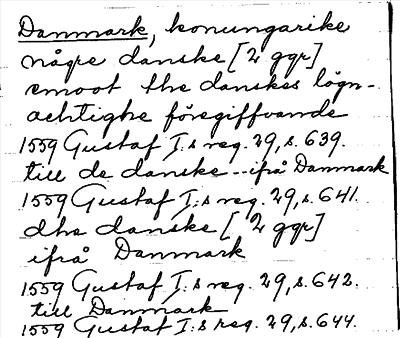 Danmark, konungarike
någre danske [2 ggr]
emoot the danskes lögn-
achtighe föregiffvande
1559 Gustaf I:s reg. 29, s. 639.
till de danske - ifrå Danmark
1559 Gustaf I:s reg. 29, s. 641.
dhe danske [2 ggr]
ifrå Danmark
1559 Gustaf I:s reg. 29, s. 642.
till Danmark
1559 Gustaf I:s reg. 29, s. 644.